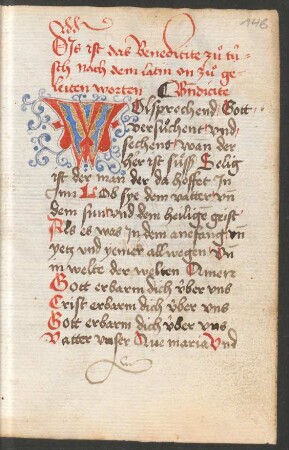 146
Dis ist das Benedicite zu tü-
tsch nach dem latin vn zu ge-
leiten worten Benedicite
Wolsprechend Gott
versuchent vnd
sechent wan der
her ist süss Selig
ist der man der da hoffet In
Inn LOb sye dem vatter vn
dem sun vnd dem heilige geist
Als es was In dem anefang vn
yetz vnd yemer allwegen Vn
in welte der welten Amen
Gott erbarm dich über vns
Crist erbarm dich über vns
Gott erbarm dich über vns
Vatter vnser Aue maria Vnd